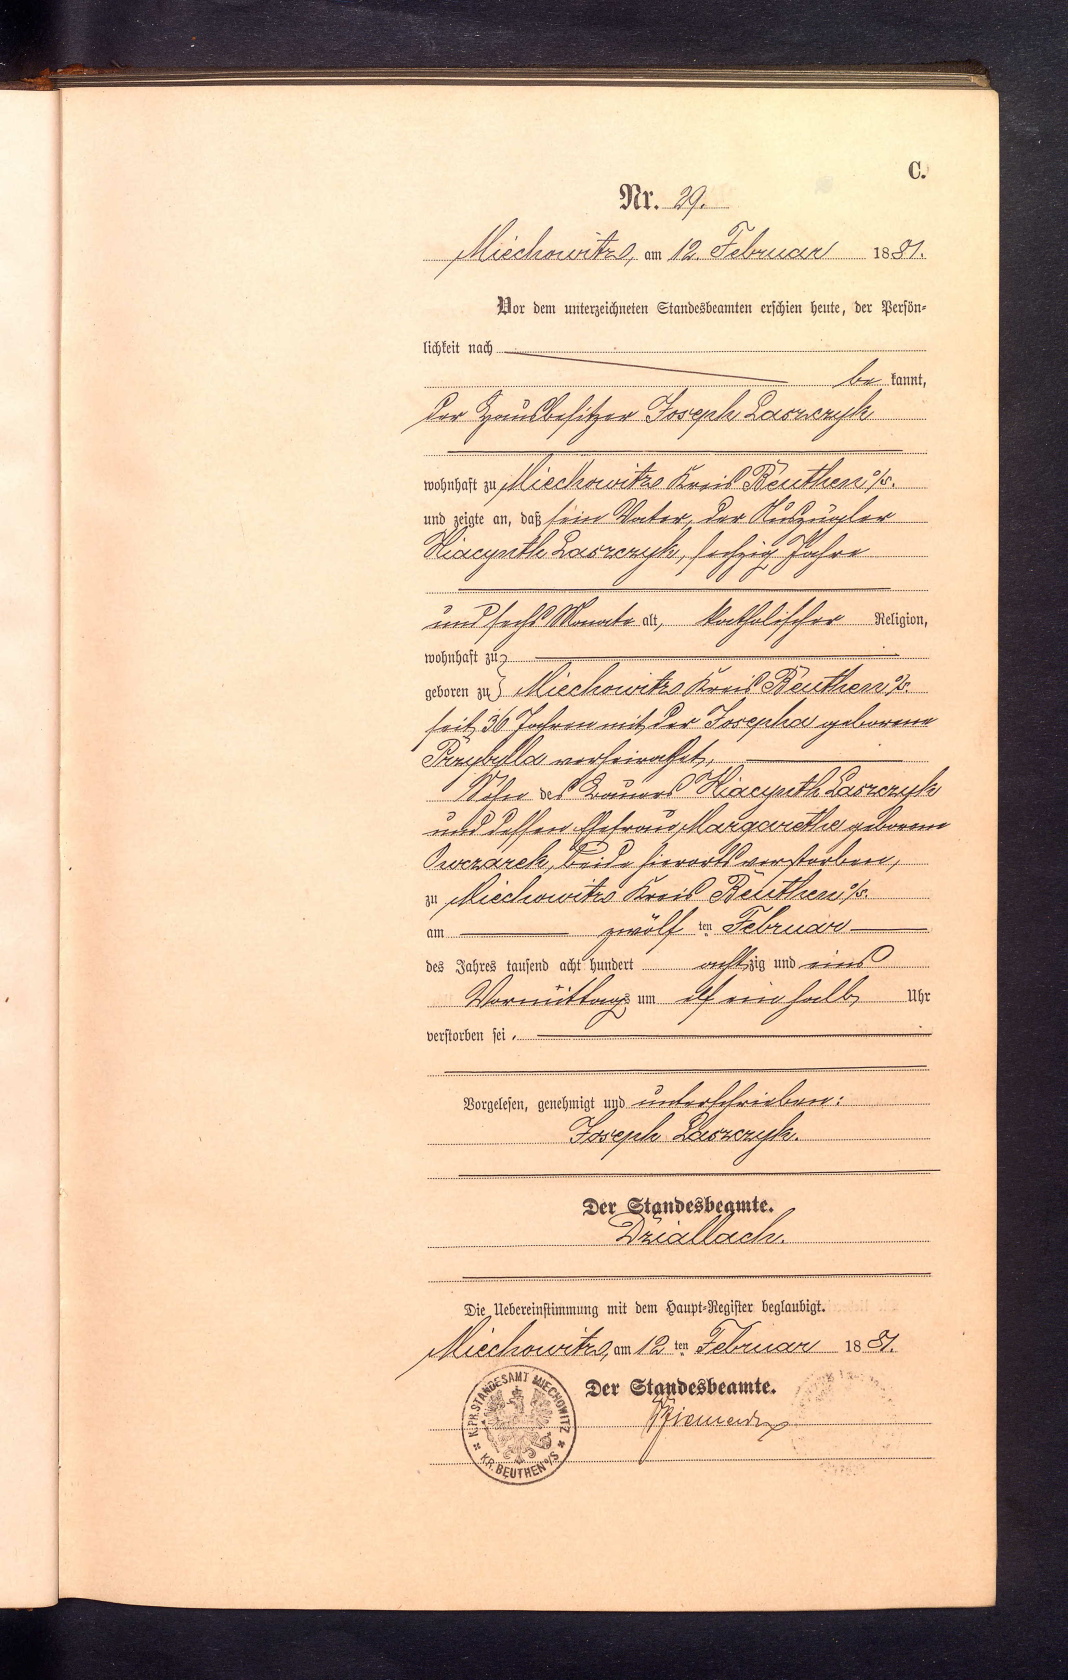 C.
Nr. 29.
Miechowitz, am 12. Februar 1881.
Vor dem unterzeichneten Standesbeamten erschien heute, der Persön-
lichkeit nach
be kannt,
der Hausbesitzer Joseph Laszczyk
wohnhaft zu Miechowitz Kreis Beuthen o/s.
und zeigte an, daß sein Vater, der Auszügler
Hiacynth Laszczyk, sechzig Jahre
und sechs Monate alt, katholischer Religion,
wohnhaft zu
geboren zu Miechowitz Kreis Beuthen o/s.
seit 36 Jahren mit der Josepha geborene
Przybylla verheirathet,
Sohn des Bauers Hiacynth Laszczyk
und dessen Ehefrau Margarethe geborene
Owczarek, beide hierorts verstorben,
zu Miechowitz Kreis Beuthen o/s.
am zwölf ten Februar
des Jahres tausend acht hundert achtzig und eins
Vormittags um elf ein halb Uhr
verstorben sei.
Vorgelesen, genehmigt und unterschrieben:
Joseph Laszczyk.
Der Standesbeamte.
Dziallach.
Die Uebereinstimmung mit dem Haupt-Register beglaubigt.
Miechowitz, am 12 ten Februar 1881.
Der Standesbeamte.
K. PR. STANDESAMT MIECHOWITZ
KR. BEUTHEN O/S